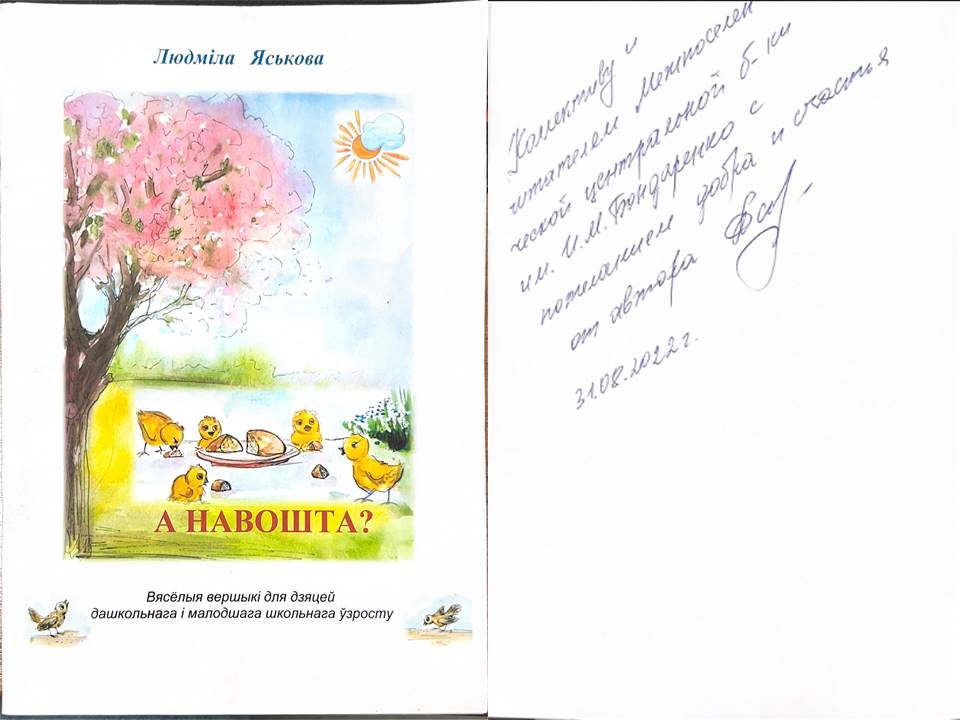 Людміла Яськова
А НАВОШТА?
Вясёлыя вершыкі для дзяцей
дашкольнага і малодшага школьнага ўзросту
Коллективу и
читателем Межпоселен
ческой центральной б-ки
им. И.М. Бондаренко с
пожеланием добра и счастья
от автора
31.08.2022 г.